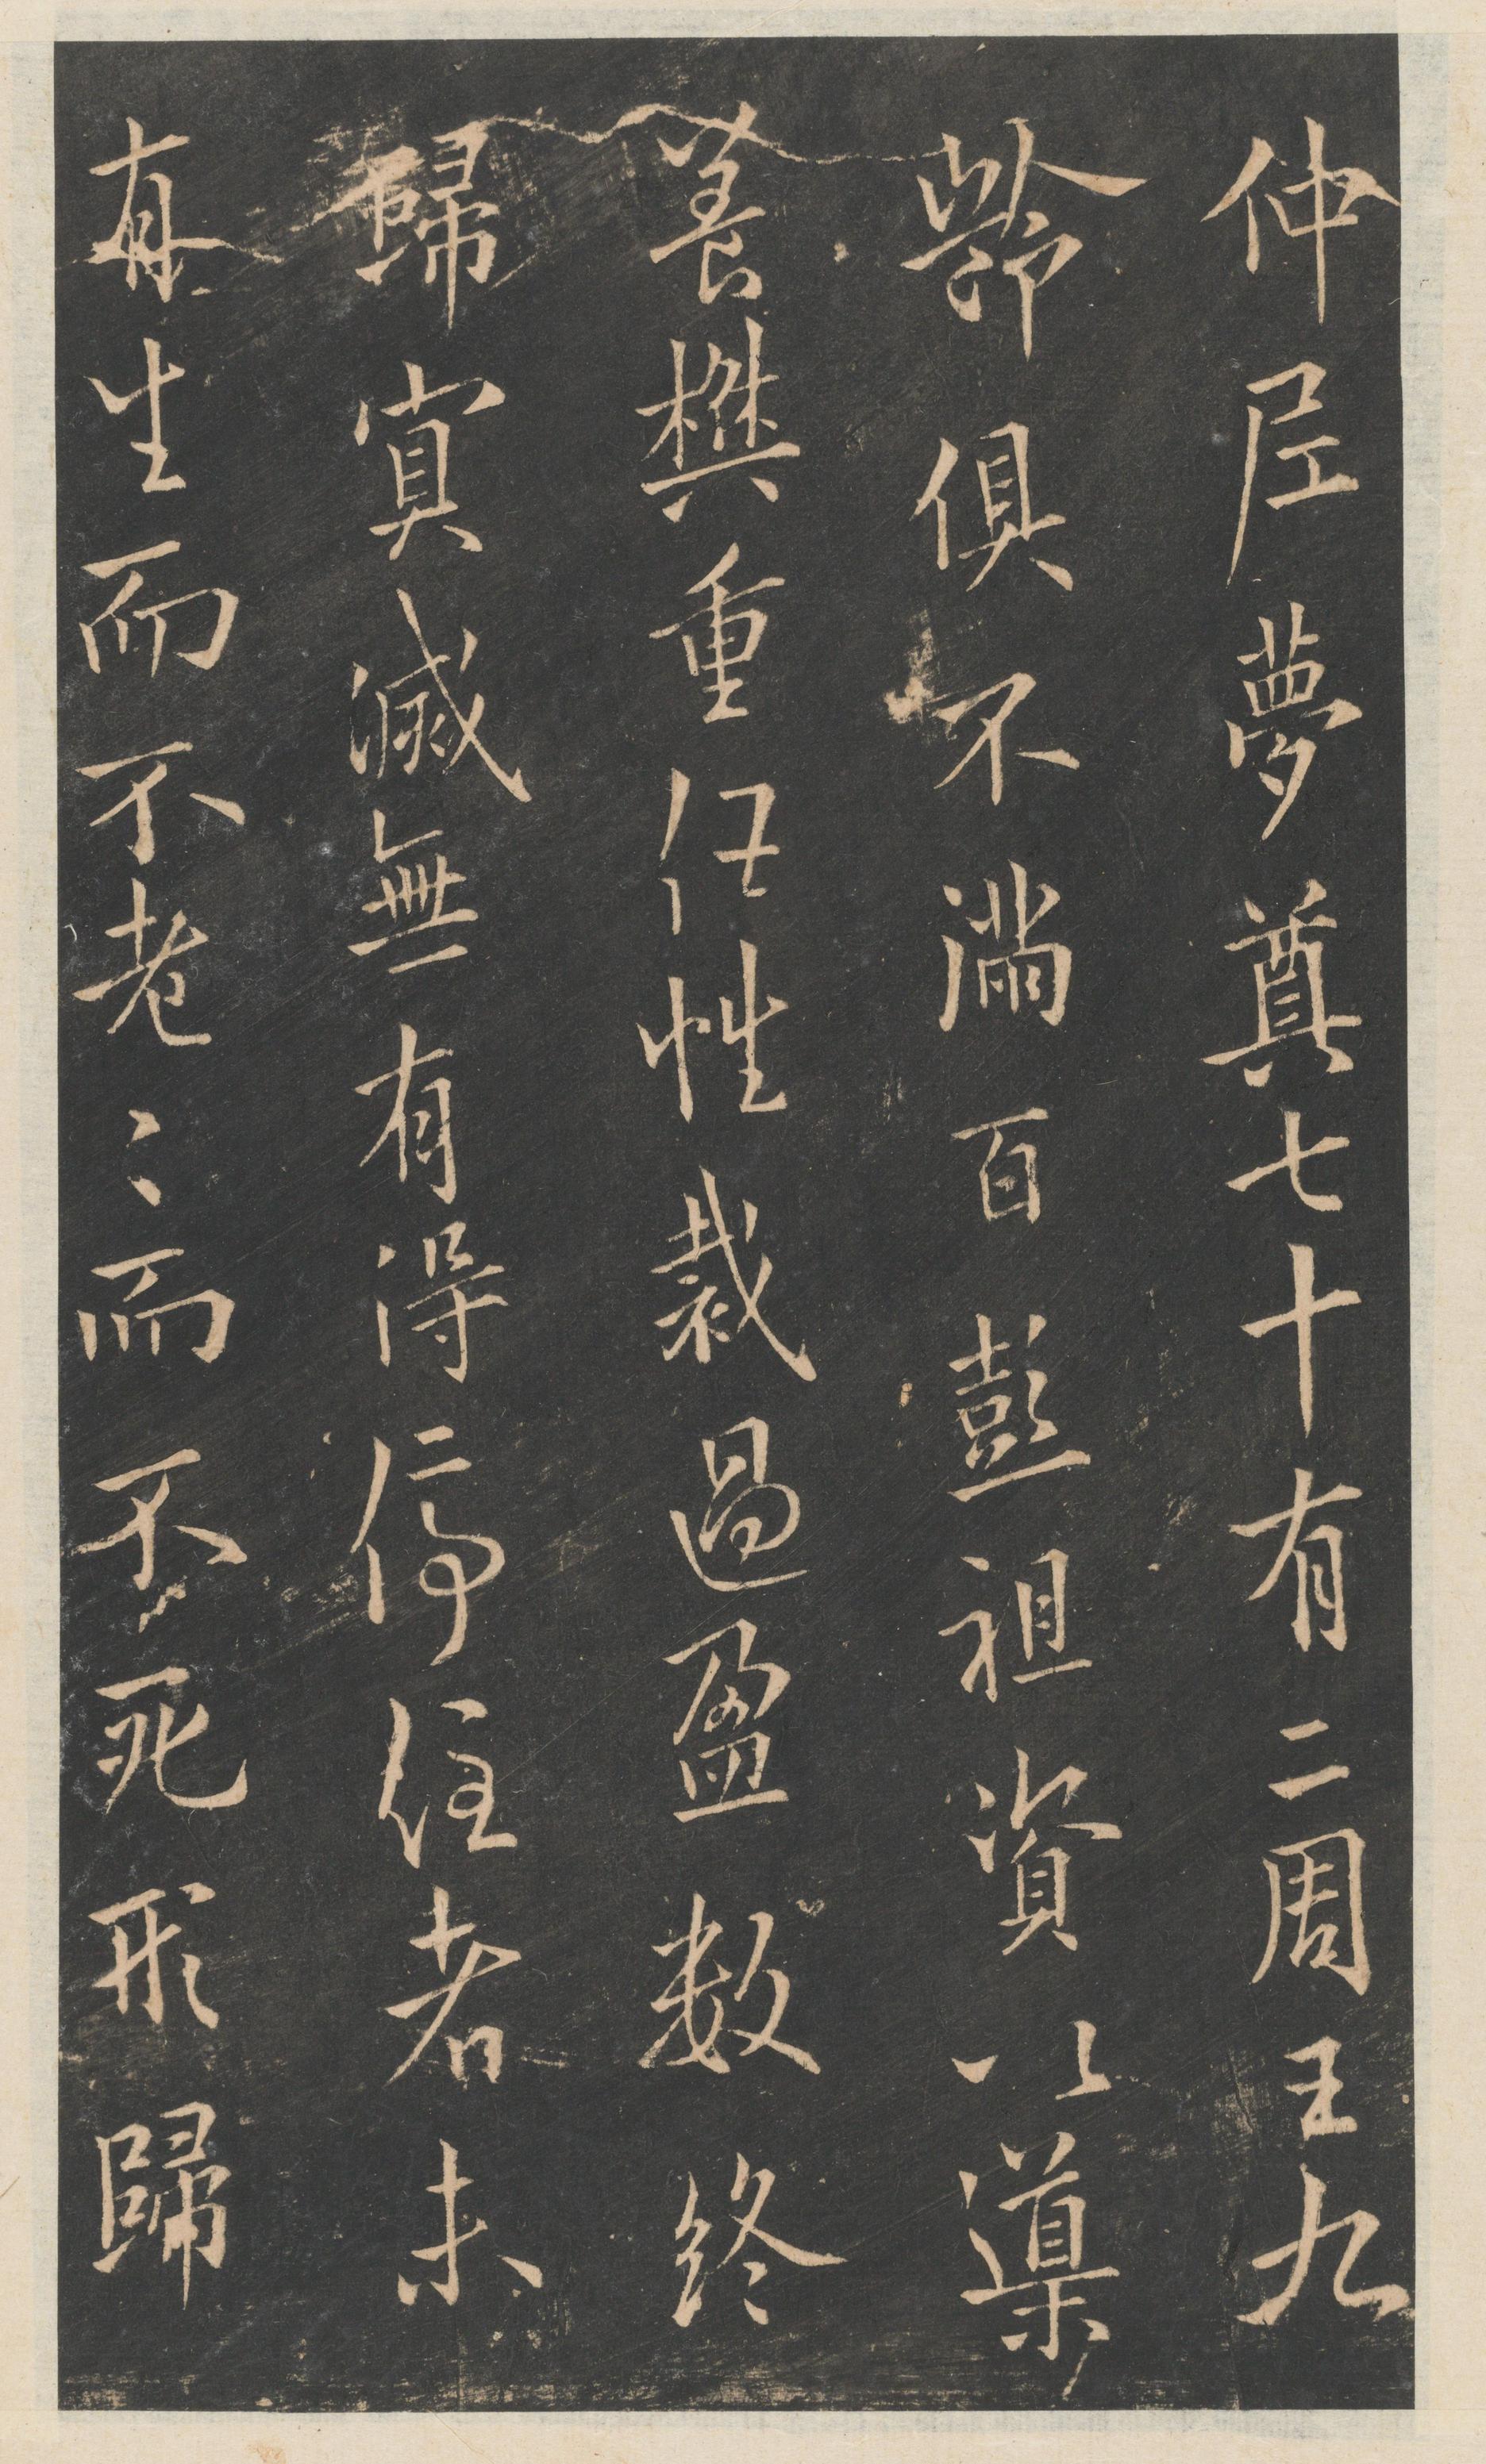 仲尼夢奠七十有二周王九
齡俱不滿百彭祖資以導
養樊重任性裁過盈數終
歸冥滅無有得停住者未
有生而不老〻而不死形歸